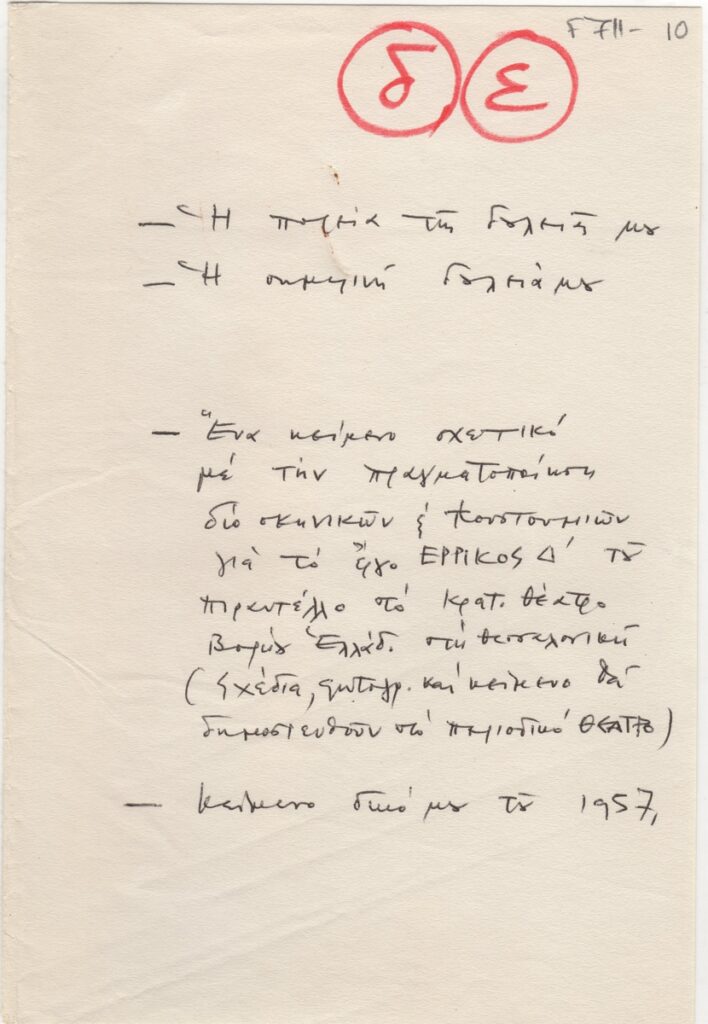 F7II- 10
δ ε
— Ἡ πορεία τῆς δουλειᾶς μου
— Ἡ σημερινή δουλειά μου
— Ἕνα κείμενο σχετικό
μέ τήν πραγματοποίηση
δύο σκηνικῶν & κοστουμιῶν
γιά τό ἔργο ΕΡΡΙΚΟΣ Δ΄ τοῦ
Πιραντέλλο στό Κρατ. Θέατρο
Βορείου Ἑλλάδ. στή Θεσσαλονίκη
(Σχέδια, φωτογρ. καί κείμενο θά
δημοσιευθοῦν στό περιοδικό ΘΕΑΤΡΟ)
— Κείμενο δικό μου τοῦ 1957,